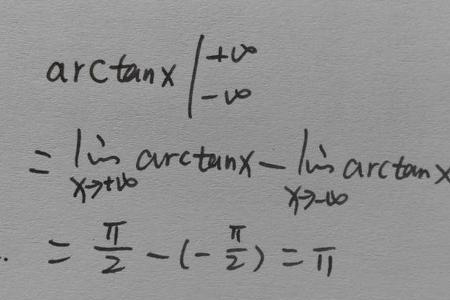 arctanx |_{-∞}^{+∞}
= lim_{x→+∞} arctanx - lim_{x→-∞} arctanx
= π/2 - (-π/2) = π